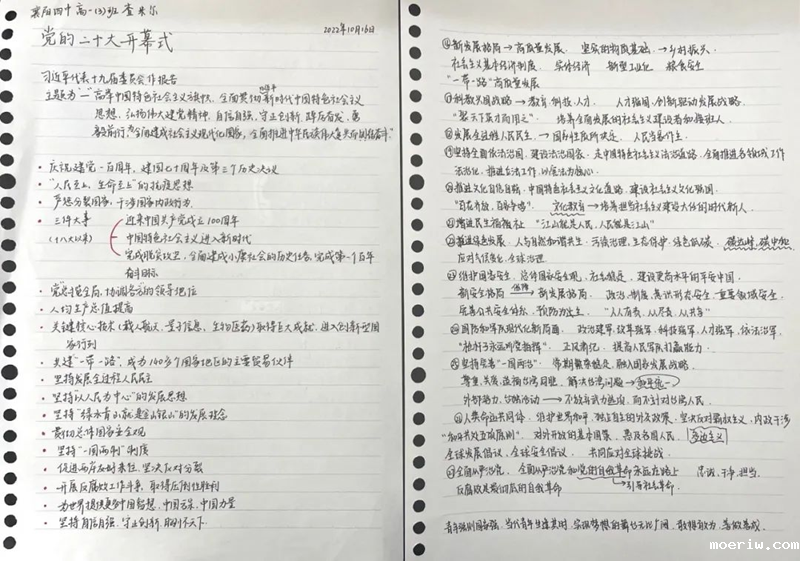 襄阳四中高一(3)班 查米尔
2022年10月16日
党的二十大开幕式
习近平代表十九届委员会作报告
主题为"高举中国特色社会主义旗帜,全面贯彻新时代中国特色社会主义
思想,弘扬伟大建党精神,自信自强、守正创新,踔厉奋发、勇
毅前行,为全面建成社会主义现代化国家,全面推进中华民族伟大复兴而团结奋斗"
• 庆祝建党一百周年,建国七十周年及第三个历史决议
• "人民至上,生命至上"的抗疫思想
• 严惩分裂国家,干涉国家内政行为
• 三件大事 迎来中国共产党成立100周年
(十八大以来) 中国特色社会主义进入新时代
完成脱贫攻坚,全面建成小康社会的历史任务,完成第一个百年
奋斗目标
• 党总揽全局,协调各方的领导地位
• 人均生产总值提高
• 关键核心技术(载人航天,量子信息,生物医药)取得巨大成就,进入创新型国
家行列
• 共建"一带一路",成为140多个国家地区的主要贸易伙伴
• 坚持发展全过程人民民主
• 坚持"以人民为中心"的发展思想
• 坚持"绿水青山就是金山银山"的发展理念
• 贯彻总体国家安全观
• 坚持"一国两制"制度
• 促进两岸友好来往,坚决反对分裂
• 开展反腐败工作斗争,取得压倒性胜利
• 为世界提供更多中国智慧,中国方案,中国力量
• 坚持自信自强,守正创新,胸怀天下
⑥新发展格局→高质量发展 坚实的物质基础→乡村振兴
社会主义基本经济制度 实体经济 新型工业化 粮食安全
"一带一路"高质量发展
⑦科教兴国战略→教育,科技,人才 人才强国,创新驱动发展战略
"聚天下英才而用之" 培养全面发展的社会主义建设者和接班人
⑧发展全过程人民民主→国家性质所决定 人民当家作主
⑨坚持全面依法治国,建设法治国家,走中国特色社会主义法治道路,全面推进各领域工作
法治化,推进立法工作,以宪法为核心
⑩推进文化自信自强,中国特色社会主义文化道路,建设社会主义文化强国
"百花齐放,百家争鸣" 文化教育→培养担当社会主义建设大任的时代新人
⑪增进民生福祉 "江山就是人民,人民就是江山"
⑫推进绿色发展 人与自然和谐共生,污染治理,生态保护,绿色低碳,碳达峰,碳中和
应对气候变化,全球治理
⑬维护国家安全,总体国家安全观,社会稳定 建设更高水平的平安中国
新安全格局 保障→ 新发展格局 政治,制度,意识形态安全,重要领域安全
完善公共安全体系,预防为主
⑭国防和军队现代化新局面 政治建军,改革强军,科技强军,人才强军,依法治军
正风肃纪 提高人民军队打赢能力
⑮坚持完善"一国两制" 港澳繁荣稳定,融入国家发展战略
尊重,关爱,造福台湾同胞 解决台湾问题→和平统一
外部势力,台独活动→不放弃武力统一,而不针对台湾人民
⑯人类命运共同体 维护世界和平,独立自主的外交政策,坚决反对霸权主义,内政干涉
"和平共处五项原则" 对外开放的基本国策 惠及各国人民
全球发展倡议,全球安全倡议 共同应对全球挑战
⑰全面从严治党 全面从严治党和党的自我革命永远在路上 清廉,干净,担当
反腐败是最彻底的自我革命 →引导社会革命
青年强则国家强,当代青年生逢其时,实现梦想的舞台无比广阔,敢想敢为,善做善成.
www.moeriw.com